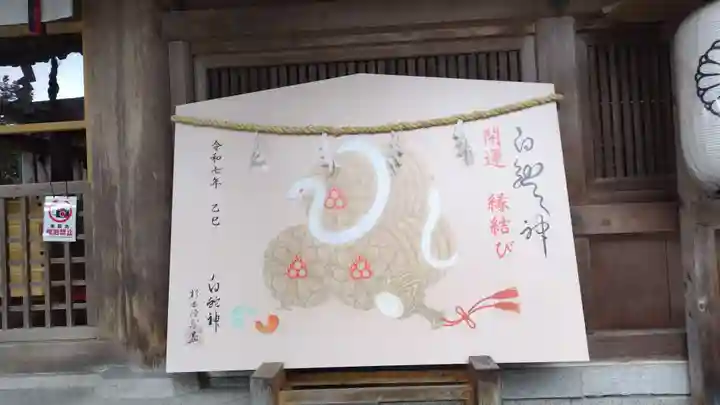 白蛇神
開運
縁結び
令和七年 乙巳
白蛇神
撮影禁止